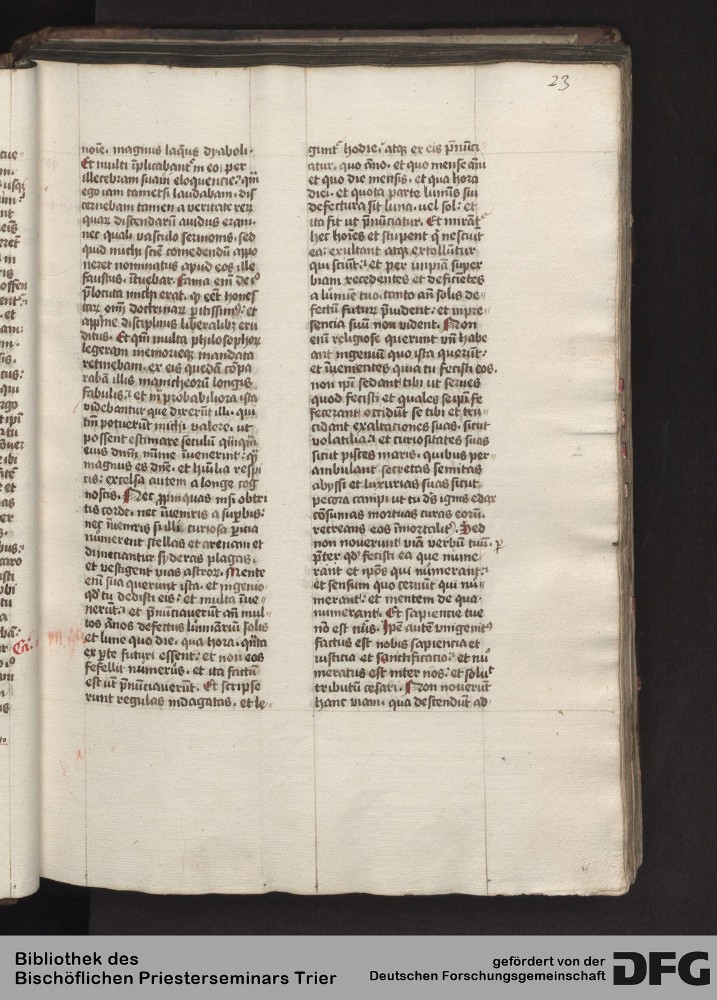 23
noīe. magnus laq̄us dyaboli.
Et multi īplicabant᷑ in eo. per
illecebram suam eloquencie. qm̄
ego iam tametsi laudabam. dis
cernebam tamen a veritate rerꝝ
quaꝝ discendarū auidus eram.
nec quali vasculo sermonis. sed
quid michi sciē comedendū appo
neret nominatus apud eos ille
faustus. ītuebar. Fama em̄ de eo
p̄locuta michi erat. ꝙ eēt hones
taꝝ om̄ doctrinaꝝ p̄itissimꝰ. et
app̄me disciplinis liberalibꝫ eru
ditus. Et qm̄ multa philosophoꝝ
legeram memorieqꝫ mandata
retinebam. ex eis quedā cōpa
rabā illis manicheorū longis
fabulis. et m̄ probabiliora ista
videbantur que dixerūt illi. qui
tm̄ potuerūt
possent estimare seculū
eius dnm̄ mīme īuenerint. qm̄
magnus es dnē. et hūilia respi
cis. excelsa autem a longe cog
noscis. Nec ꝓpinquas nisi obtri
tis corde. nec īueniris a suꝑbis.
nec īueniris si illi curiosa ꝑicia
numerent stellas et arenam et
dimeciantur syderas plagas.
et vestigent vias astroꝝ. Mente
enī sua querunt ista. et ingenio
qd̄ tu dedisti eis. et multa īue-
nerūt. et p̄nūciauerūt an̄ mul
tos ānos defectus lumīariū solis
et lune quo die. qua hora. qn̄ta
ex ꝑte futuri essent. et non eos
fefellit numerus. et ita factū
est ut p̄nūciauerūt. Et scripse
runt regulas indagatas. et le-
gunt᷑ hodie. atqꝫ ex eis p̄nūci
atur. quo āno. et quo mense āni
et quo die mensis. et qua hora
diei. et quota parte lumīs sui
defectura sit luna. uel sol. et
ita fit ut p̄nūciatur. Et mirāt᷑
hec hoīes et stupent q̄ nesciūt
ea. exultant atqꝫ extollūtur
qui sciūt. et per impiā super
biam recedentes et deficietes
a lumīe tuo. tanto an̄ solis de-
fectū futurū p̄uident. et in pre-
sencia suū non vident. Non
enī religiose querunt vn̄ habe
ant ingeniū quo ista querūt.
et īuenientes quia tu fecisti eos.
non ipi sedant tibi ut serues
quod fecisti et quales seipsi fe
cerant occidūt se tibi et tru-
cidant exaltaciones suas. sicut
volatilia. et curiositates suas
sicut pisces maris. quibus per-
ambulant secretas semitas
abyssi et luxurias suas sicut
pecora campi ut tu ds̄ ignis edax
cōsumas mortuas curas eorū.
recreans eos īmortalit᷑. Sed
non nouerunt viā verbū tuū. ꝑ
p̄ter qd̄ fecisti ea que nume-
rant et ip̄os qui numerant.
et sensum quo cernūt qui nu-
merant. et mentem de qua
numerant. Et sapiencie tue
nō est nūs. Ip̄e autē vnigenitꝰ
factus est nobis sapiencia et
iusticia et sanctificatio. et nu
meratus est inter nos. et soluit
tributū cesari. Non nouerūt
hanc viam. qua descendūt ad
Bibliothek des
Bischöflichen Priesterseminars Trier
gefördert von der
Deutschen Forschungsgemeinschaft
DFG